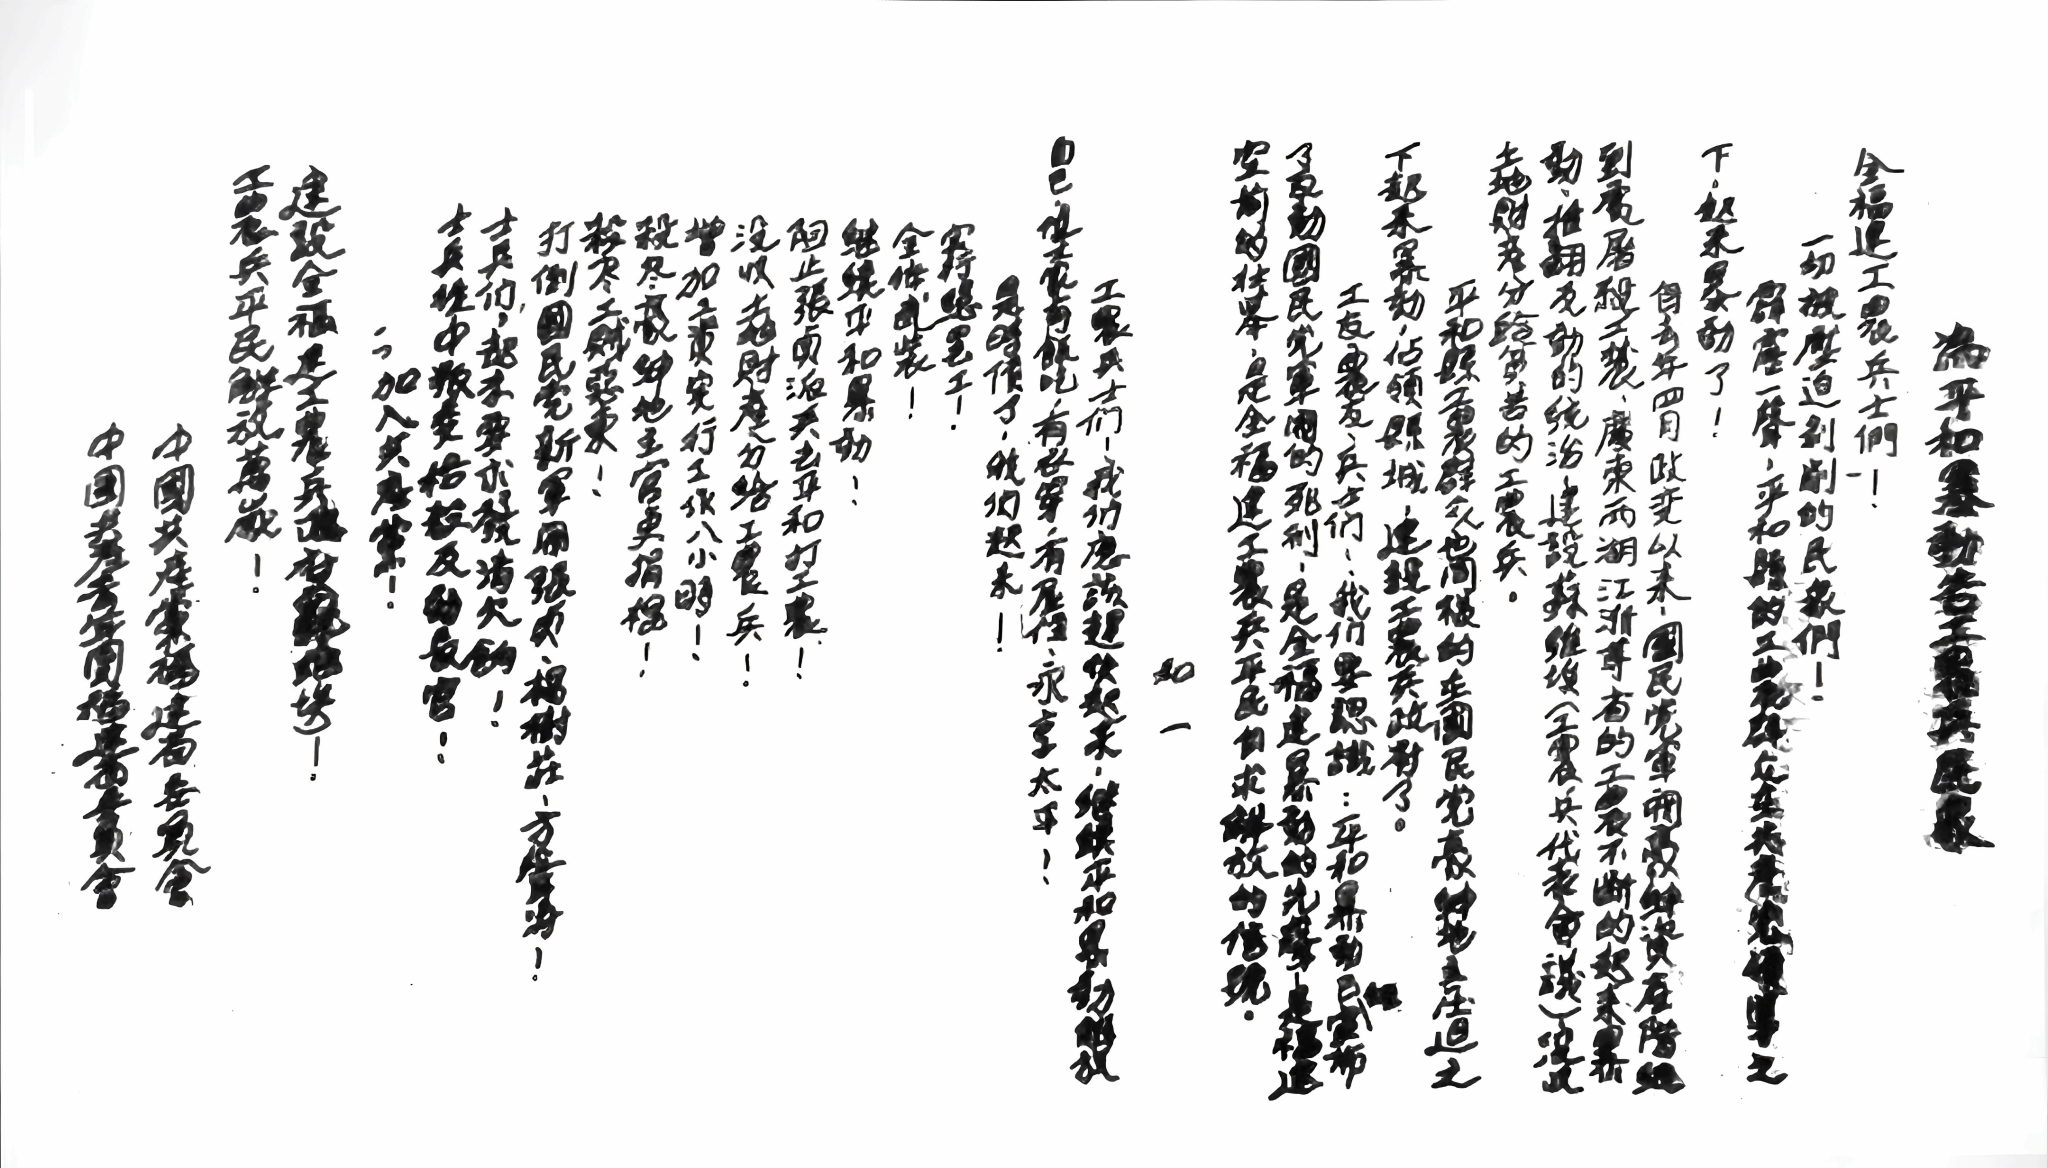 為平和暴動告工農兵民眾
全福建工農兵士們！
一切被壓迫剝削的民眾們！
霹靂一聲，平和縣的工農群众在共產党領導之
下，起來暴動了！
自去年四月政变以来，國民党軍閥及資產階級
到處屠殺工農，廣東两湖江浙等省的工农不断的起来暴
動，推翻反動的統治，建設蘇維埃（工農兵代表會議）沒收
土地財產分給窮苦的工農兵。
平和縣工農群众也同樣的在國民党豪紳地主压迫之
下起来暴動，佔領縣城，建設工農兵政府了。
工友農友、兵士們，我们要認識：平和暴動已經宣布
了反動國民党軍閥的死刑，是全福建暴動的先聲，是福建
空前的壮举，是全福建工農兵平民自求解放的信號。
如 一
工農兵士们，我们應該趕快起来，继续平和暴动解放
自己，使大家有飯吃，有衣穿，有屋住，永享太平！
是時候了，我们起来！
實行總罢工！
全体武装！
继续平和暴动！
阻止張贞派兵去平和打工農！
没收土地財產分给工農兵！
增加工資实行工作八小時！
殺尽豪紳地主官吏
殺尽工賊
打倒國民党新軍閥張贞、楊樹莊、方聲涛！
士兵们，起来要求發清欠餉！
士兵
加入共產黨！
建設全福建工農兵政府
工農兵平民解放萬歲！
中國共產黨福建省委員會
中國共產青年團福建省委員會